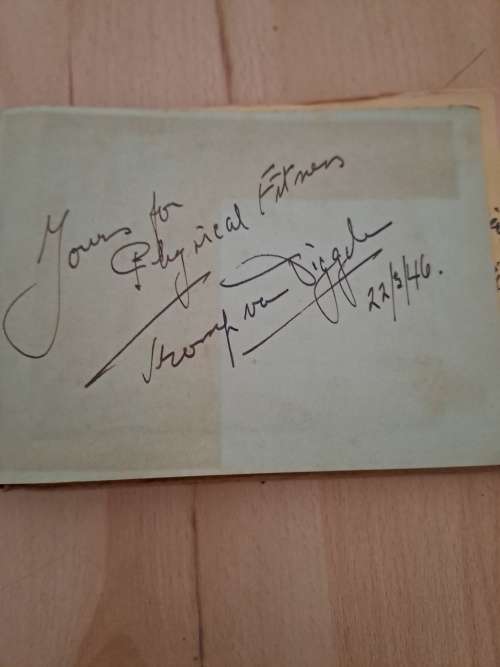 Yours for
Physical Fitness
Tromp van Diggelen
22/3/46.